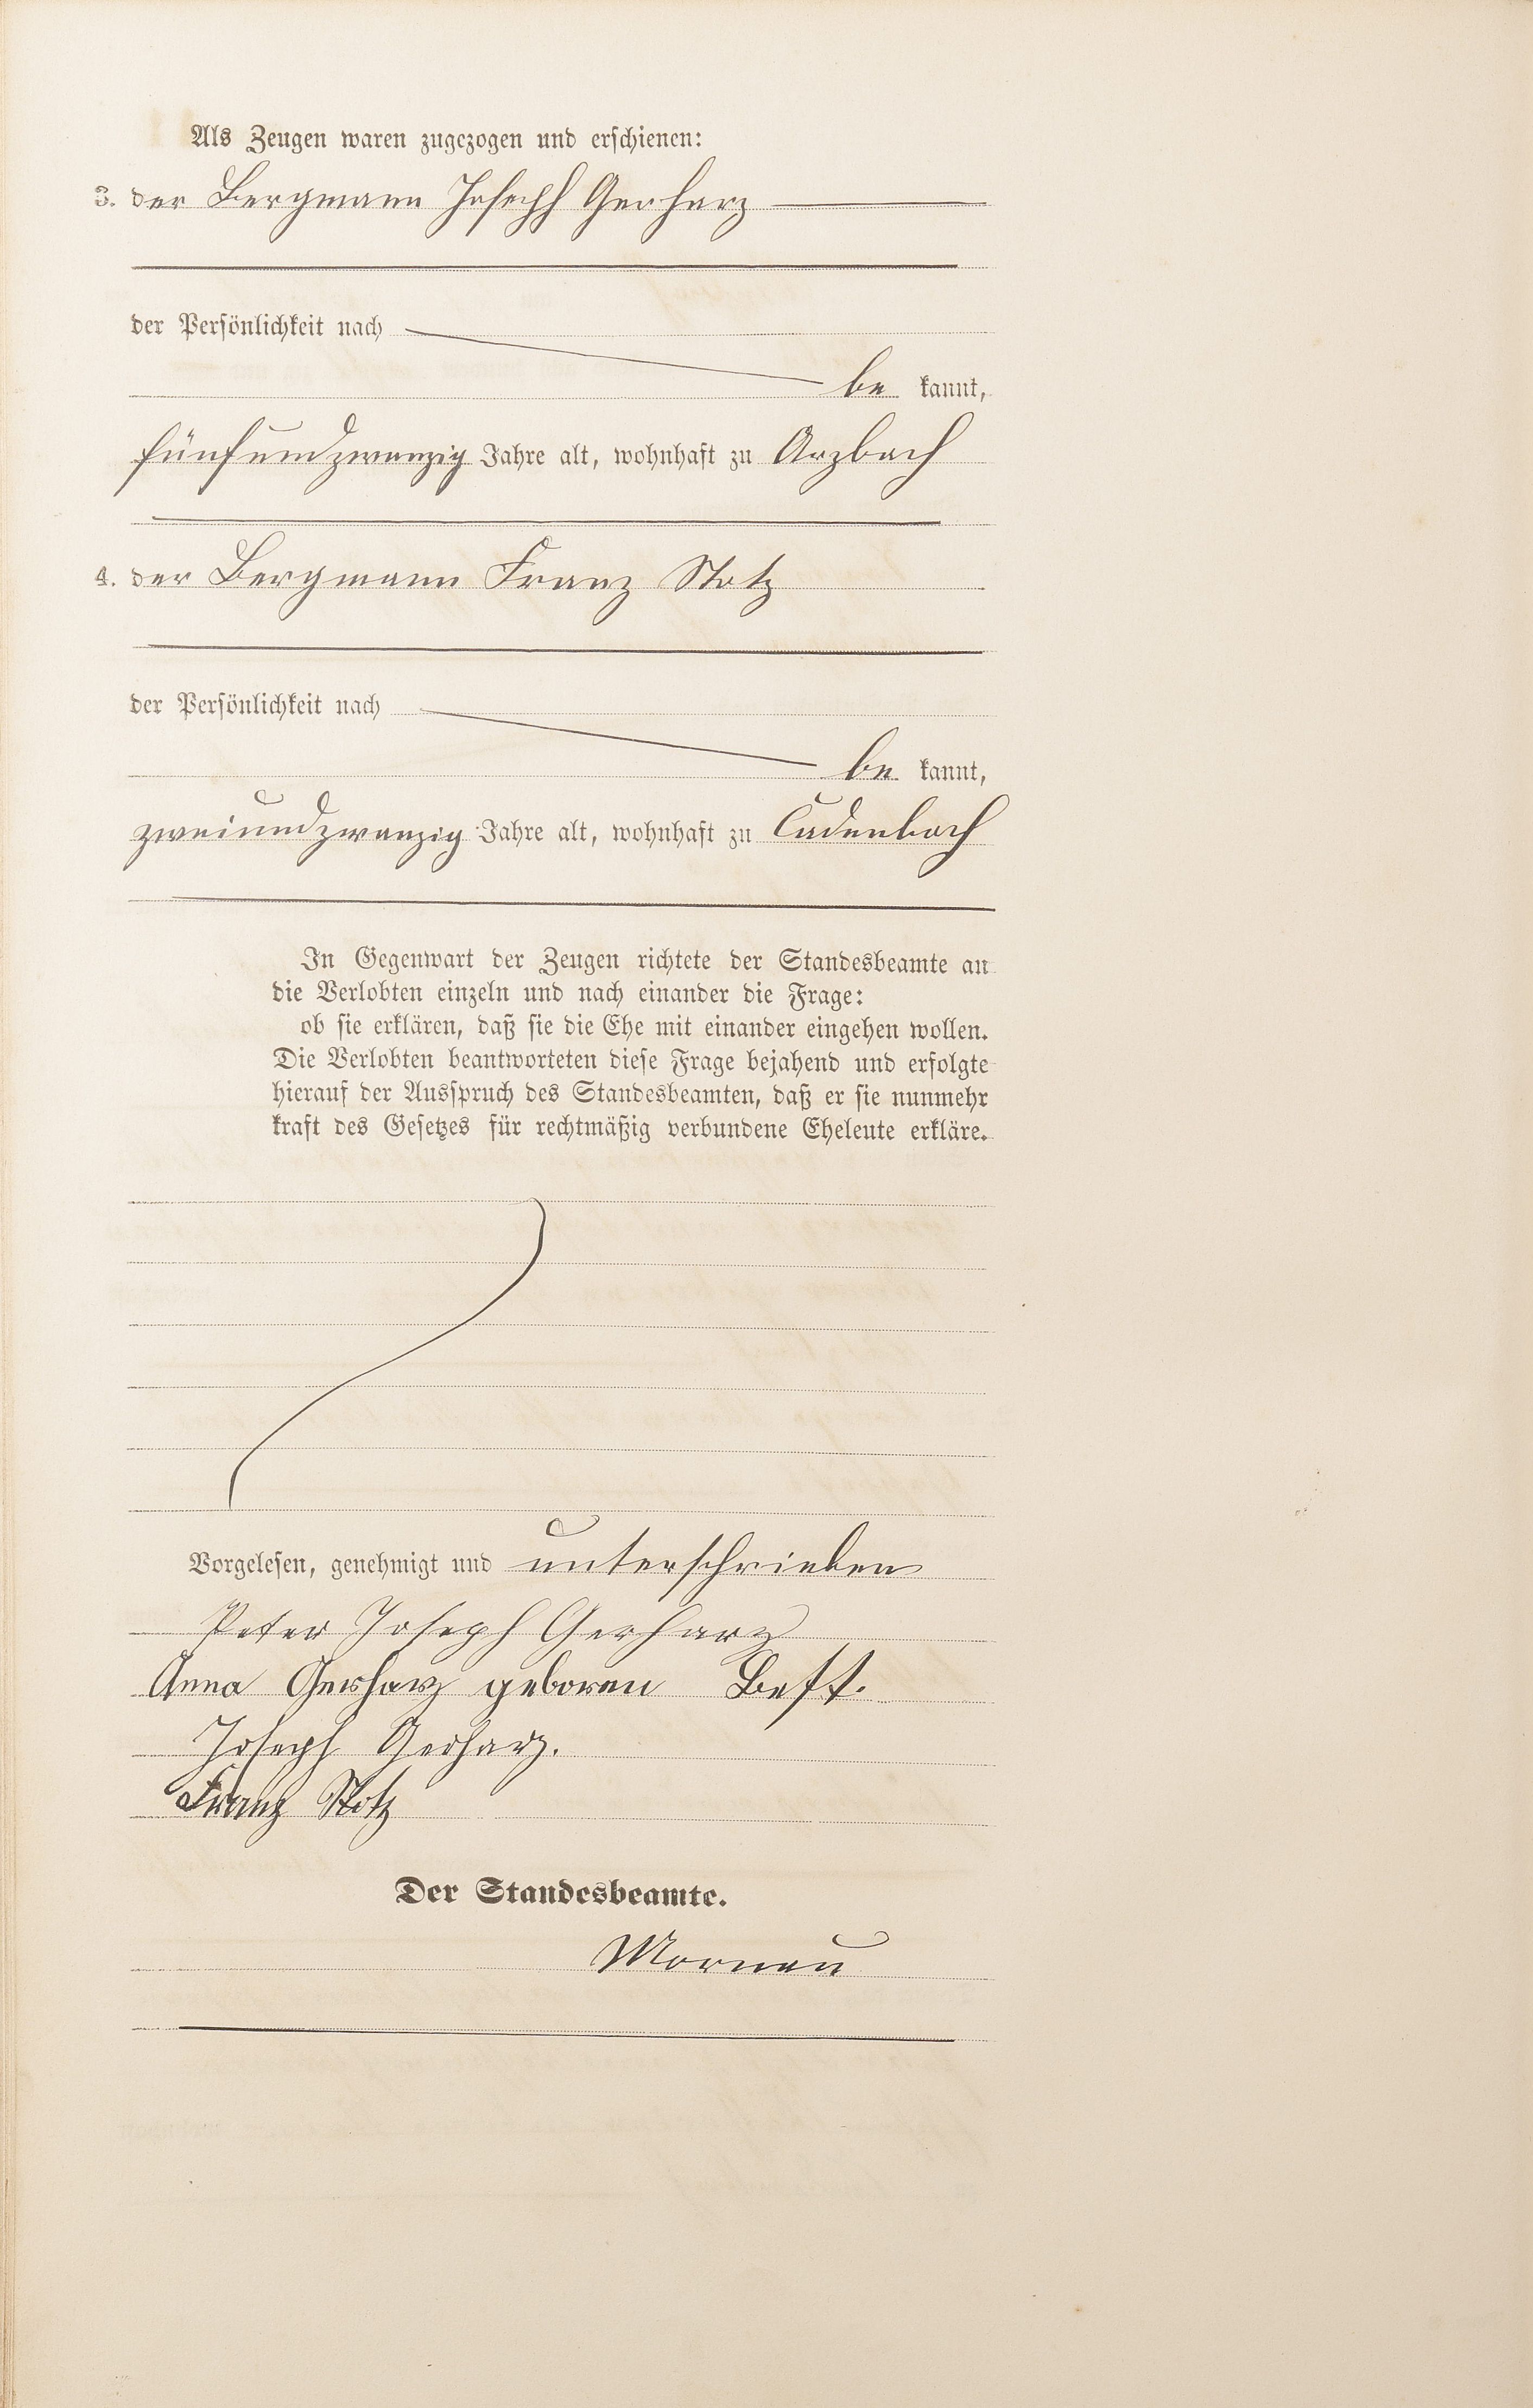 Als Zeugen waren zugezogen und erschienen:
3. der Bergmann Joseph Gerharz
der Persönlichkeit nach
be kannt,
fünfundzwanzig Jahre alt, wohnhaft zu Arzbach
4. der Bergmann Franz Stotz
der Persönlichkeit nach
be kannt,
zweiundzwanzig Jahre alt, wohnhaft zu Cadenbach
In Gegenwart der Zeugen richtete der Standesbeamte an
die Verlobten einzeln und nach einander die Frage:
ob sie erklären, daß sie die Ehe mit einander eingehen wollen.
Die Verlobten beantworteten diese Frage bejahend und erfolgte
hierauf der Ausspruch des Standesbeamten, daß er sie nunmehr
kraft des Gesetzes für rechtmäßig verbundene Eheleute erkläre.
Vorgelesen, genehmigt und unterschrieben
Peter Joseph Gerharz
Anna Gerharz geboren
Joseph Gerharz.
Franz Stotz
Der Standesbeamte.
Mornau